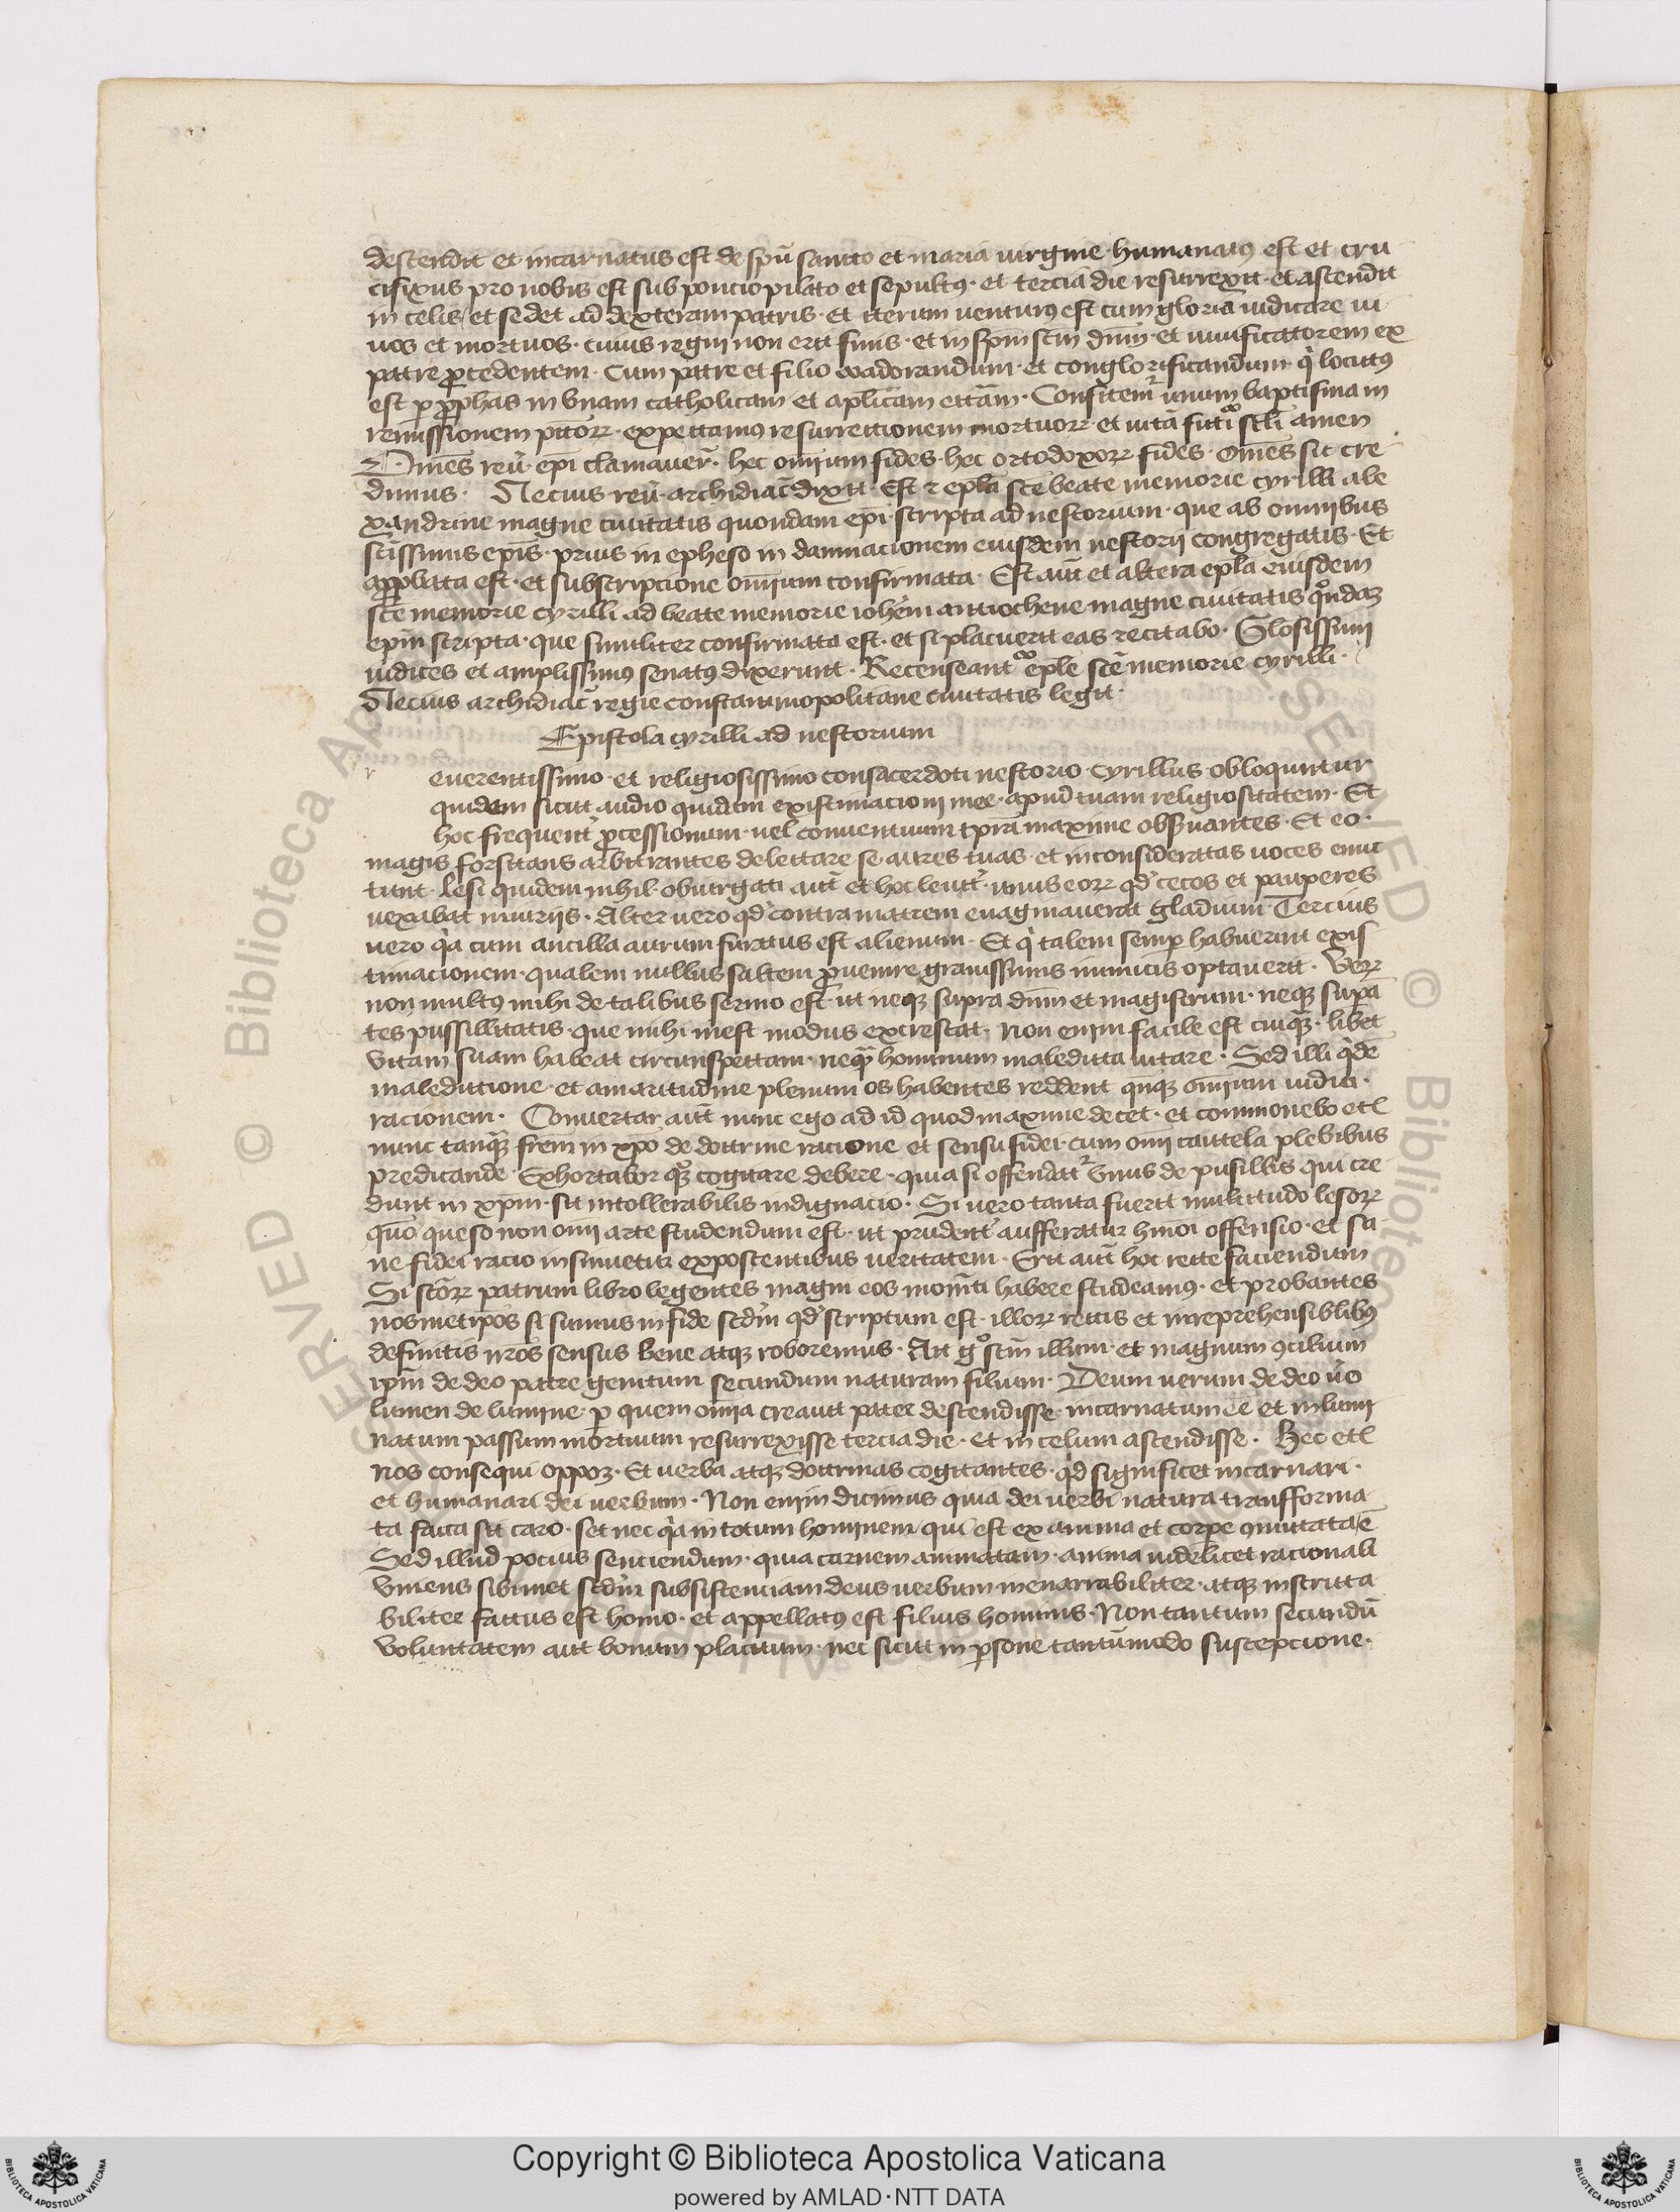 descendit et incarnatus est de spũ sancto et maria uirgine humanatꝯ est et cru
cifixus pro nobis est sub poncio pilato et sepultꝯ. et tercia die resurrexit. et ascendit
in celis et sedet ad dexteram patris. et iterum uenturꝯ est cum gloria iudicare ui
uos et mortuos. cuius regni non erit finis. et in spm̄ scm̄ dnm̄. et uiuificatorem ex
patre ꝓcedentem. Cum patre et filio coadorandum. et conglorificandum. qͥ locutꝯ
est ꝑ ꝓphas in vnam catholicam et aplicam̄ ecc̄am. Confitemur unum baptisma in
remissionem pccoꝝ. expectamꝯ resurrectionem mortuoꝝ. et uitā futi scl̄i amen
Omēs reũ. ep̄i clamauer̄. hec omnium fides. hec ortodoxoꝝ fides. omēs sic cre
dimus. Aecius reũ. archidiac̄ dixit. Est ⁊ epl̄a sc̄e beate memorie cyrilli ale
xandrine magne ciuitatis quondam ep̄i scripta ad nestorium. que ab omnibus
sc̄issimis ep̄is. prius in epheso in damnacionem eiusdem nestorii congregatis. Et
apꝓbata est. et subscripcione omium confirmata. Est aut̄ et altera epl̄a eiusdem
sc̄e memorie cyrilli ad beate memorie ioh̄em antiochene magne ciuitatis qͦndaꝫ
epm̄ scripta. que similiter confirmata est. et si placuerit eas recitabo. Glosissimi
iudices et amplissimꝯ senatꝯ dixerunt. Recenseant epl̄e sc̄e memorie cyrilli.
Aecius archidiac̄ regie constantinopolitane ciuitatis legit.
Epistola cyrilli ad nestorium
r euerentissimo et religiosissimo consacerdoti nestorio cyrillus obloquntur
quidem sicut audio quidam existimacioni mee. apud tuam religiositatem. Et
hoc frequent̄ ꝓcessionum. uel conuentuum tp̄ra maxime obseruantes. Et eo.
magis forsitans arbitrantes delectare se aures tuas. et inconsideratas uoces emit
tunt. lesi quidem nihil. obiurgati aut̄ et hoc leuit̄. unus eoꝝ qd̓ cecos et pauperes
uexabat iniuriis. Alter uero qd̓ contra matrem euaginauerat gladium. Tercius
uero qͥa cum ancilla aurum furatus est alienum. Et qͥ talem semꝑ habuerunt exis
timacionem. qualem nullus saltem ꝓuenire grauissimis inimicis optauerit. Veꝝ
non multꝯ mihi de talibus sermo est. ut neqꝫ supra dnm̄ et magistrum. neqꝫ supra
tes pussillitatis. que mihi inest modus excrescat. Non enim facile est cuiqͣꝫ. libet
vitam suam habeat circunspectam. neqͣꝫ hominum maledicta uitare. Sed illi qͥdē
maledictione et amaritudine plenum os habentes reddent cunqꝫ omium iudici.
racionem. Conuertar aut̄ nunc ego ad id quod maxime decet. et commonebo etꝉ
nunc tanqͣꝫ frem̄ in xpo de doctrine racione et sensu fidei. cum omi cautela plebibus
predicande. Exhortabor qͣꝫ cogitare debere. quia si offendat̄ vnus de pusillis qui cre
dunt in xpm̄. sit intollerabilis indignacio. Si uero tanta fuerit multitudo lesoꝝ
quō queso non omi arte studendum est. ut prudent̄ aufferatur hmōi offensio. et sa
ne fidei racio insinuetur exposcentibus ueritatem. Erit aut̄ hoc recte faciendum
Si sc̄oꝝ patrum libro legentes magni eos momēti habere studeamꝯ. et probantes
nosmetip̄os si sumus in fide scdm̄ qd̓ scriptum est. illoꝝ rectis et irreprehensiblibꝯ
definitis nr̄os sensus bene atqꝫ roboremus. Ait gͦ scm̄ illum. et magnum ꝯcilium
ip̄m de deo patre genitum secundum naturam filium. Deum uerum de deo ũo
lumen de lumine. ꝑ quem omia creauit pater descendisse. incarnatum eē et in humi
natum passum mortuum resurrexisse tercia die. et in celum ascendisse. Hec etꝉ
nos consequi oppoꝫ. Et uerba atqꝫ doctrinas cogitantes. qͥd significet incarnari.
et humanari dei uerbum. Non enim dicimus quia dei uerbi natura transforma
ta facta sit caro. set nec qͥa in totum hominem qui est ex anima et corpe ꝯmutata ē
Sed illud pocius senciendum. quia carnem animatam. anima uidelicet racionali
vniens sibimet scdm̄ subsistenciam deus uerbum inenarrabiliter. atqꝫ inscruta
biliter factus est homo. et appellatꝯ est filius hominis. Non tantum secundũ
voluntatem aut bonum placitum. nec sicut in ꝑsone tantũmodo suscepcione.
Copyright © Biblioteca Apostolica Vaticana
powered by AMLAD·NTT DATA